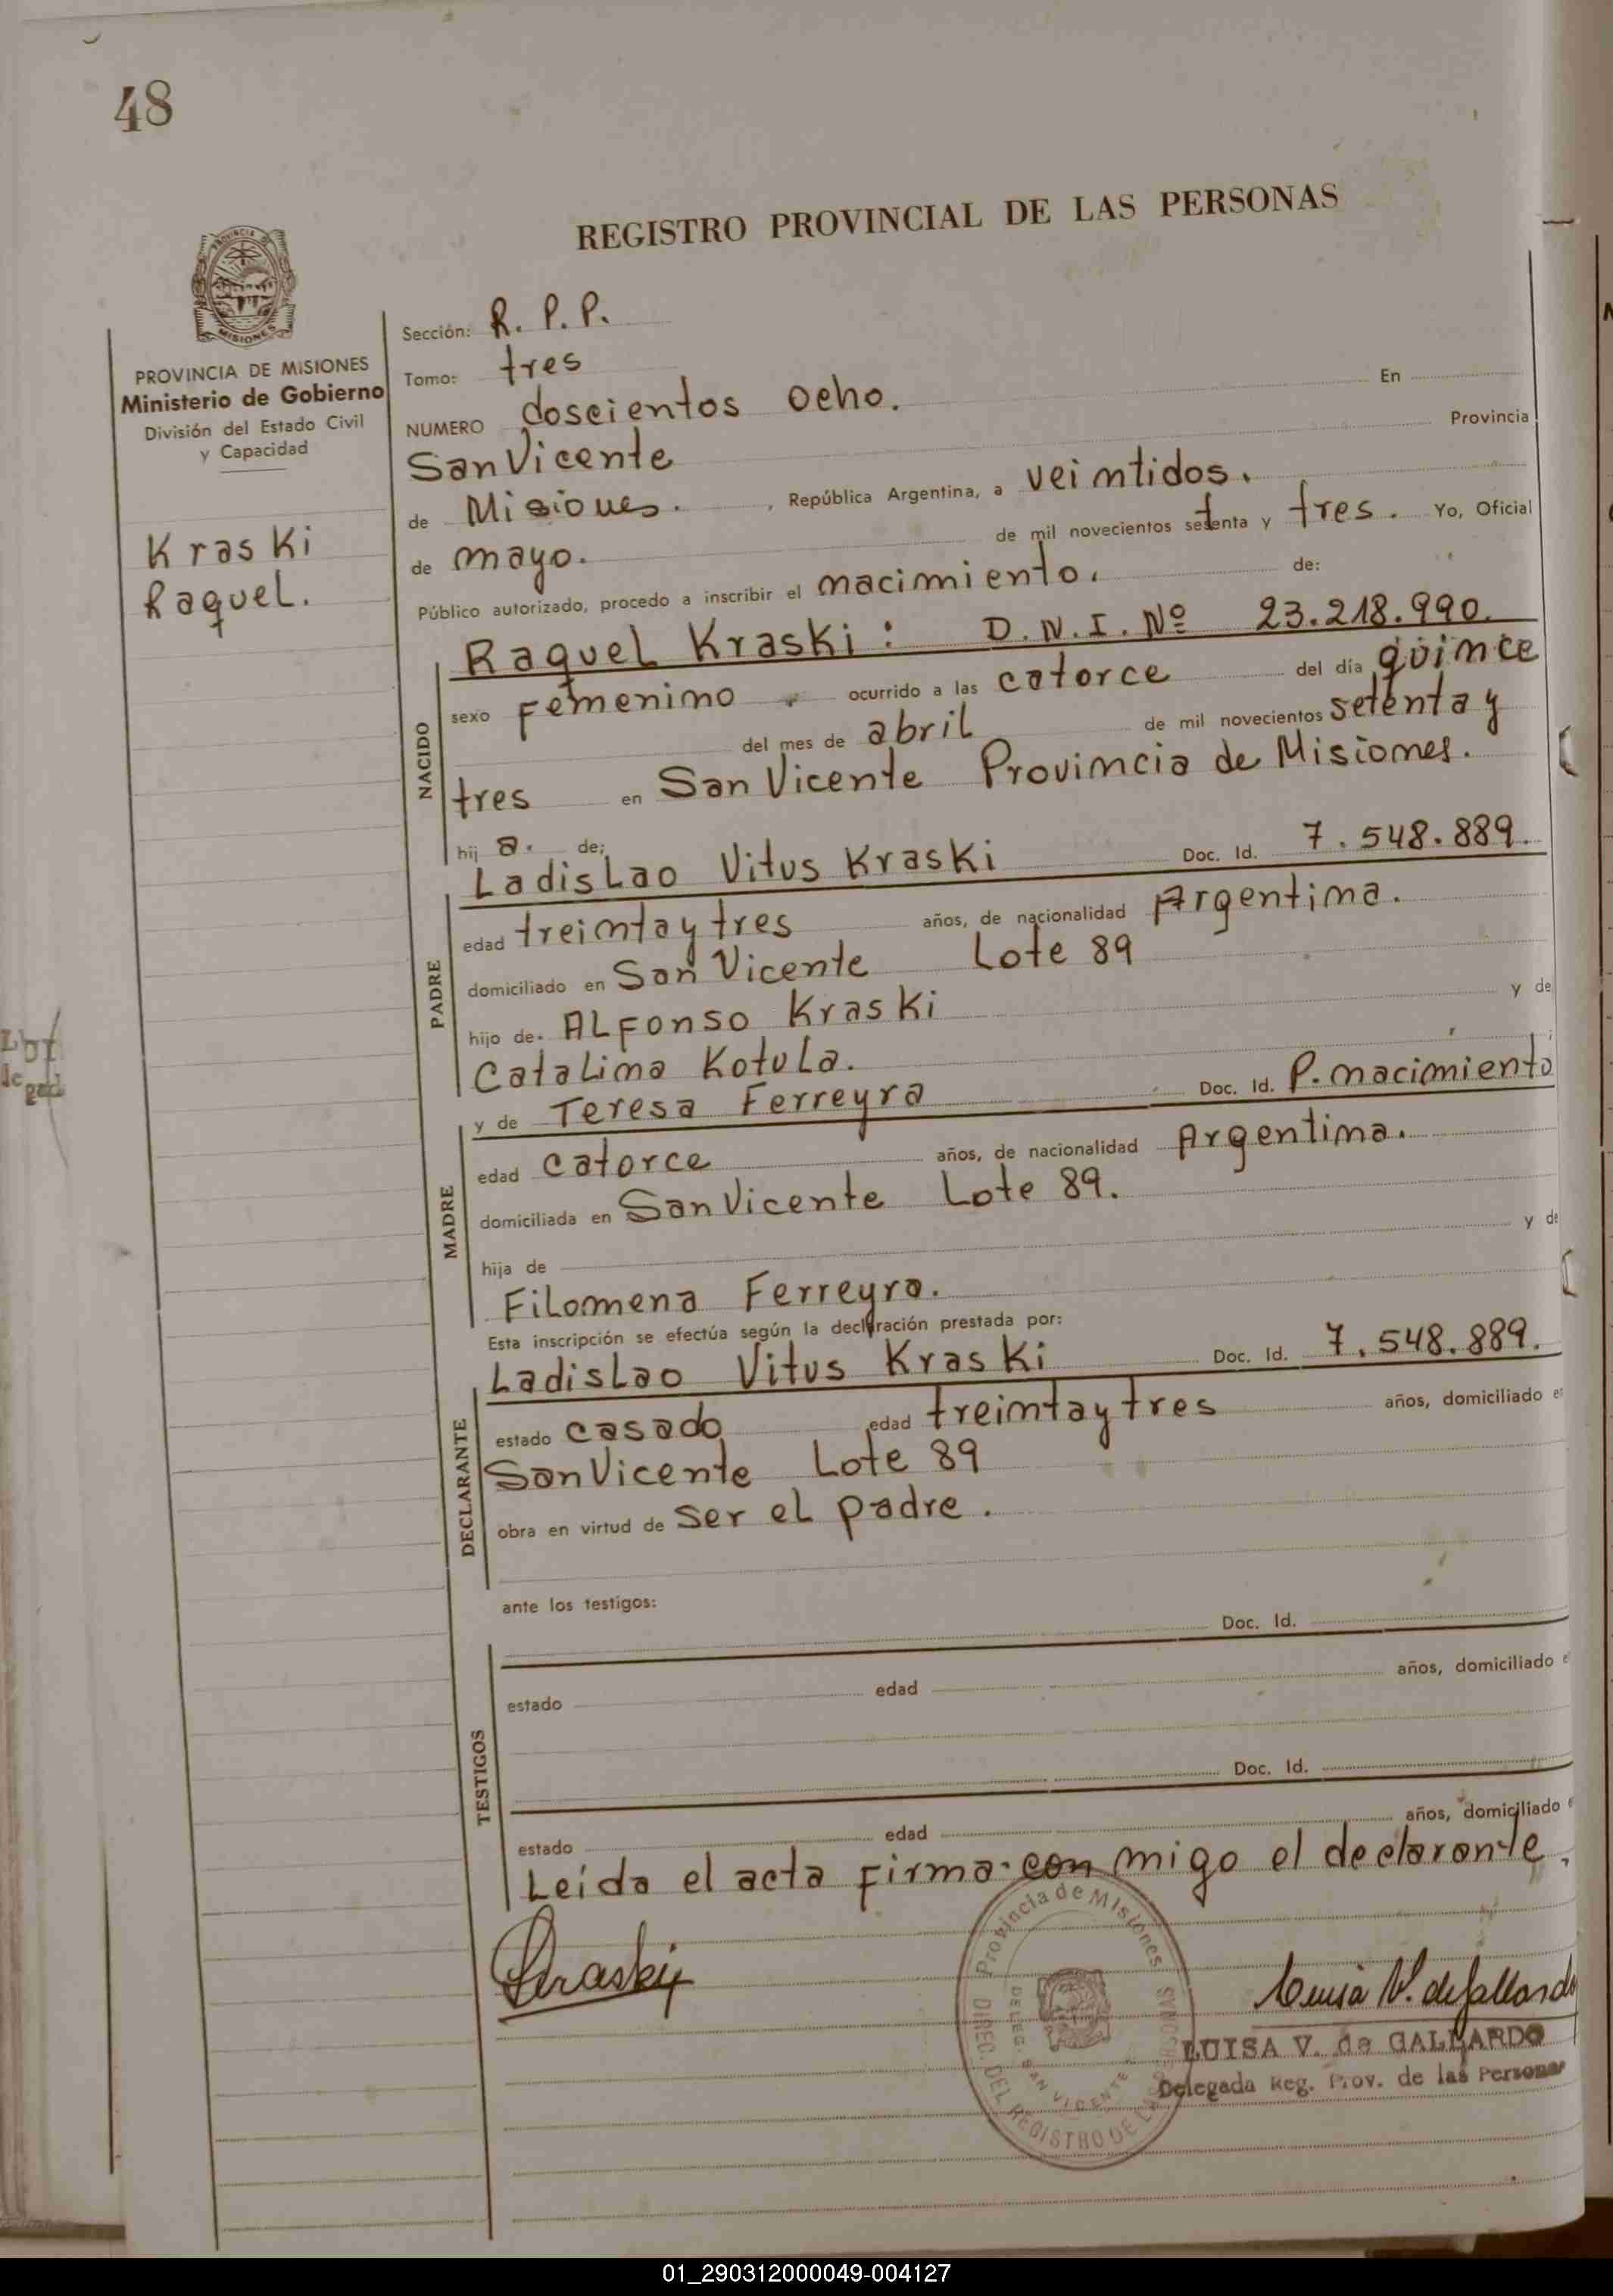 48
REGISTRO PROVINCIAL DE LAS PERSONAS
PROVINCIA DE MISIONES
Ministerio de Gobierno
División del Estado Civil
y Capacidad
Kraski
Raquel.
Sección: R. P. P.
Tomo: tres
NUMERO doscientos ocho. En
San Vicente Provincia
de Misiones. , República Argentina, a veintidos.
de mayo. de mil novecientos setenta y tres. Yo, Oficial
Público autorizado, procedo a inscribir el nacimiento. de:
NACIDO
Raquel Kraski: D.N.I. Nº 23.218.990.
sexo Femenino ocurrido a las catorce del día quince
del mes de abril de mil novecientos setenta y
tres en San Vicente Provincia de Misiones.
hij a. de;
PADRE
Ladislao Vitus Kraski Doc. Id. 7.548.889.
edad treinta y tres años, de nacionalidad Argentina.
domiciliado en San Vicente Lote 89
hijo de ALFonso Kraski y de
Catalina Kotula.
MADRE
y de Teresa Ferreyra Doc. Id. P. nacimiento
edad catorce años, de nacionalidad Argentina.
domiciliada en San Vicente Lote 89.
hija de y de
Filomena Ferreyra.
Esta inscripción se efectúa según la declaración prestada por:
DECLARANTE
Ladislao Vitus Kraski Doc. Id. 7.548.889.
estado casado edad treinta y tres años, domiciliado e
San Vicente Lote 89
obra en virtud de ser el padre.
ante los testigos:
TESTIGOS
Doc. Id.
estado edad años, domiciliado e
Doc. Id.
estado edad años, domiciliado e
Leída el acta firma con migo el declarante.
Kraski
Luisa V. de Gallardo
LUISA V. de GALLARDO
Delegada Reg. Prov. de las Personas
Provincia de Misiones
DIREC. DEL REGISTRO DE LAS PERSONAS
DELEG. SAN VICENTE
01_290312000049-004127